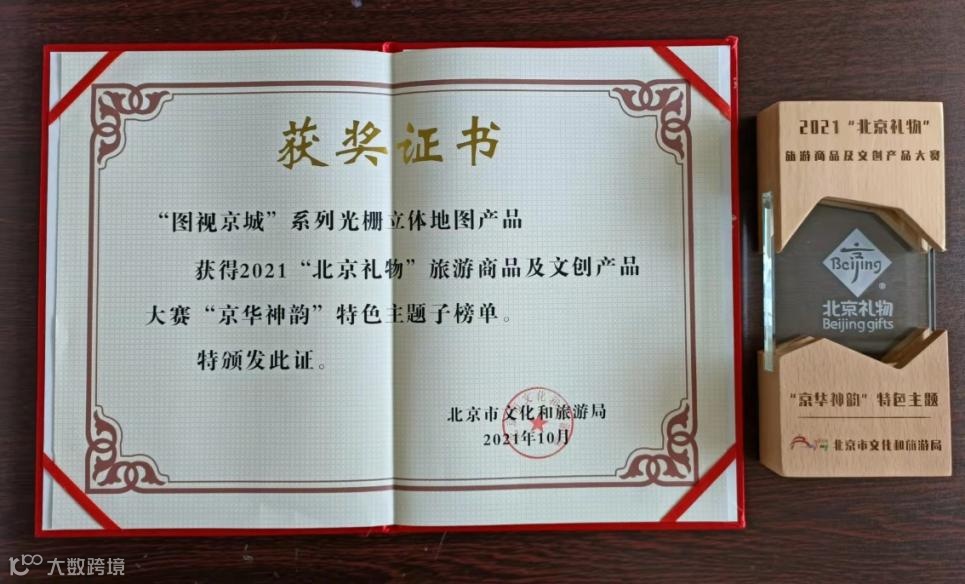 获奖证书
“图视京城”系列光栅立体地图产品
获得2021“北京礼物”旅游商品及文创产品
大赛“京华神韵”特色主题子榜单。
特颁发此证。
北京市文化和旅游局
2021年10月
2021“北京礼物”
旅游商品及文创产品大赛
Beijing
®
北京礼物
Beijing gifts
“京华神韵”特色主题
北京市文化和旅游局
大数跨境